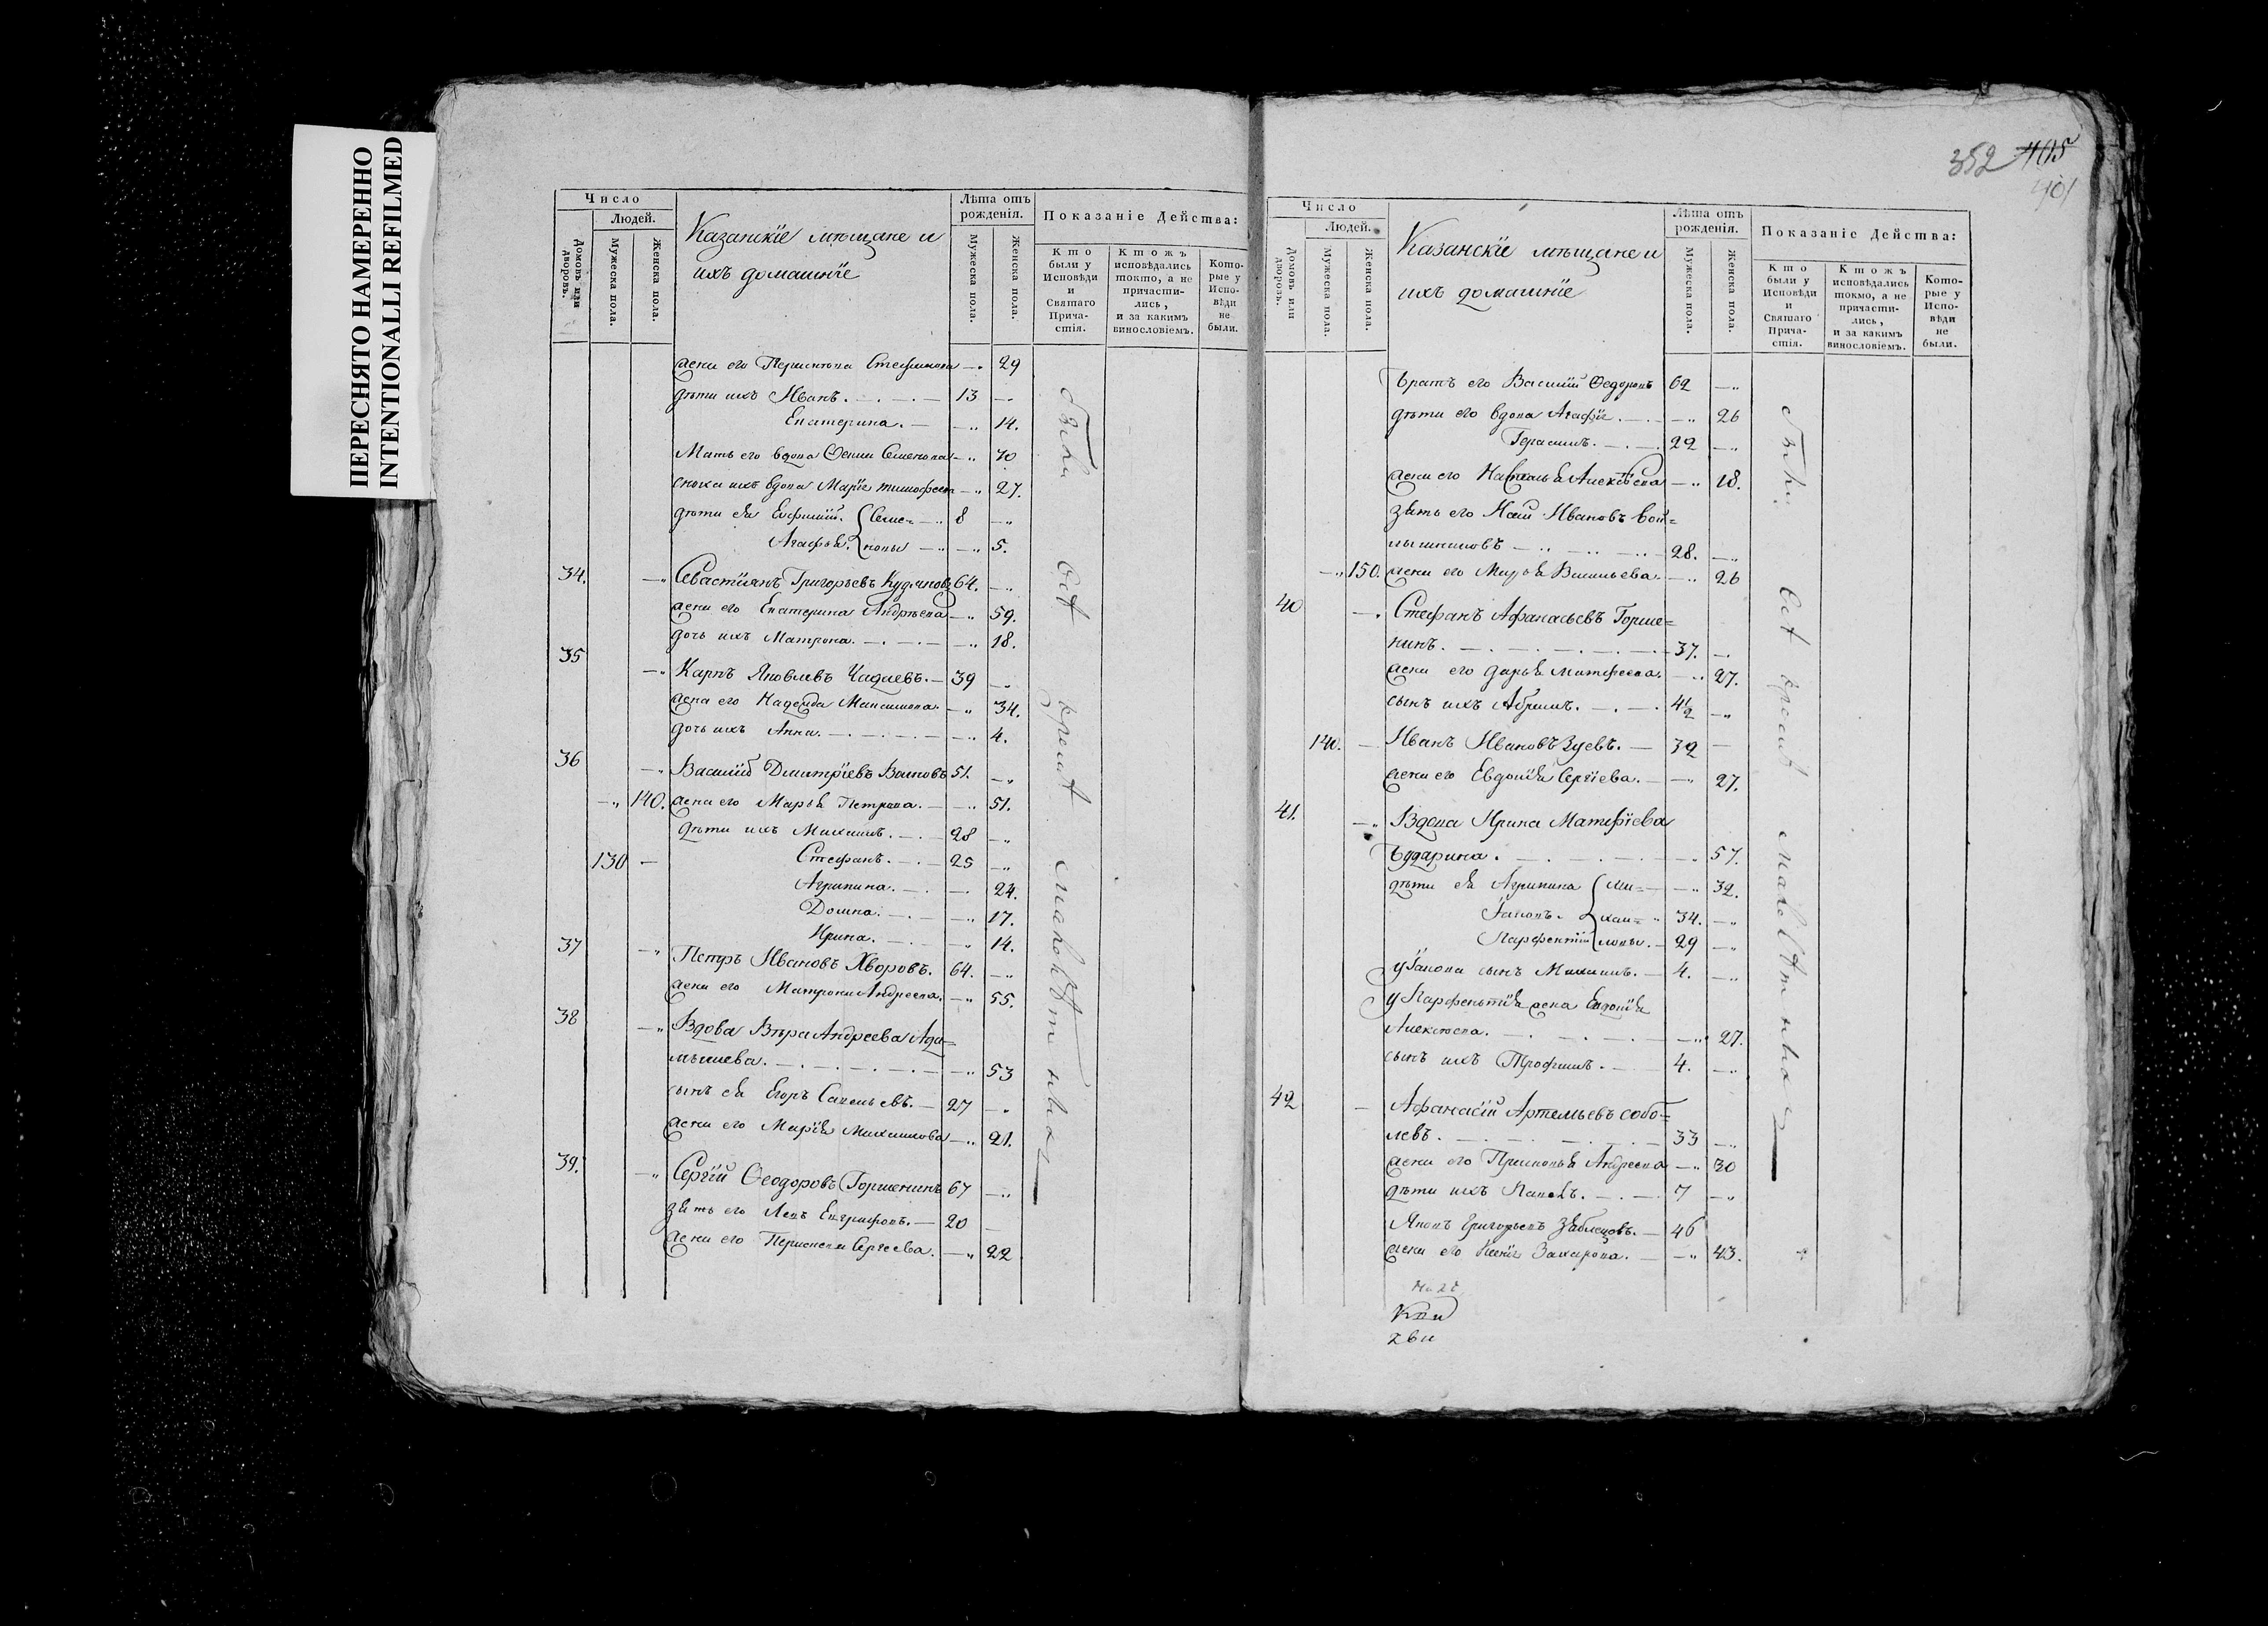 ПЕРЕСНЯТО НАМЕРЕННО
INTENTIONALLI REFILMED
Число
Людей.
Домовъ или дворовъ.
Мужеска пола.
Женска пола.
Казанскіе мѣщане и
ихъ домашніе
Лѣта отъ рожденія.
Мужеска пола.
Женска пола.
Показаніе Действа:
Кто были у Исповѣди и Святаго Причастія.
Ктожъ исповѣдались токмо, а не причастились, и за какимъ винословіемъ.
Которые у Исповѣди не были.
жена его Стефанова —„ 29
дѣти ихъ Иванъ. 13 —„
Екатерина. —„ 14.
Мать его вдова Семенова —„ 70
сноха ихъ вдова Марія тимофеева —„ 27.
дѣти ея Евфимій. Семе= 8 —„
Агафья. новы —„ 5.
34. —„ Севастіянъ Григорьевъ 64. —„
жена его Екатерина Андрѣева —„ 59.
дочь ихъ Матрона. —„ 18.
35 —„ Карпъ Яковлевъ Чадаевъ. 39 —„
жена его Надежда Максимова. —„ 34.
дочь ихъ Анна. —„ 4.
36 —„ Василій Дмитріевъ 51. —„
—„ 140. жена его Марья Петрова. —„ 51.
дѣти ихъ Михаилъ. 28 —„
130 — Стефанъ. 25 —„
Агрипина. — 24.
Домна. —„ 17.
Ирина. —„ 14.
37 —„ Петръ Ивановъ Хворовъ. 64. —„
жена его Матрона Андреева. —„ 55.
38 —„ Вдова Вѣра Андреева Ада=
мышева. —„ 53
сынъ ея Егоръ Савельевъ. 27 —„
жена его Марія Михаилова —„ 21.
39. —„ Сергій Феодоровъ Горшенинъ 67 —„
зять его Левъ Евграфовъ. 20 —
жена его Сергеева. —„ 22
были всѣ кромѣ малолѣтныхъ
352 405
401
Число
Людей.
Домовъ или дворовъ.
Мужеска пола.
Женска пола.
Казанскіе мѣщане и
ихъ домашніе
Лѣта отъ рожденія.
Мужеска пола.
Женска пола.
Показаніе Действа:
Кто были у Исповѣди и Святаго Причастія.
Ктожъ исповѣдались токмо, а не причастились, и за какимъ винословіемъ.
Которые у Исповѣди не были.
Братъ его Василій Федоровъ 62 —„
дѣти его вдова Агафія. —„ 26
Герасимъ. 22 —„
жена его Наталья Алексѣева —„ 18.
зять его Ивановъ
28. —„
—„ 150. жена его Марья Васильева. —„ 26
40 — Стефанъ Афанасьевъ Горше=
нинъ. 37. —
жена его Дарья Матфеева. —„ 27.
сынъ ихъ Абрамъ. 4½ —„
140. — Иванъ Ивановъ Зуевъ. 32 —
жена его Евдокія Сергіева. —„ 27.
41. —„ Вдова Ирина Матфіева
Бударина. —„ 57.
дѣти ея Агрипина ми= —„ 32.
Іаковъ. хаи= 34. —„
Парфентій ловы. 29 —„
у Іакова сынъ Михаилъ. 4. —„
у Парфентія жена Евдокія
Алексѣева. —„ 27.
сынъ ихъ Трофимъ. 4. —„
42 — Афанасій Артемьевъ Собо=
левъ. 33 —„
жена его Прасковья Андреева —„ 30
дѣти ихъ 7 —„
Яковъ Григорьевъ 46
жена его Ксенія Захарова. —„ 43.
были всѣ кромѣ малолѣтныхъ